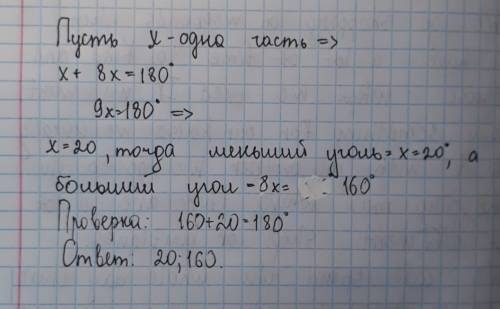 Пусть x - одна часть =>
x + 8x = 180°
9x = 180° =>
x = 20, тогда меньший уголь = x = 20°, а
больший угол - 8x = 160°
Проверка: 160 + 20 = 180°
Ответ: 20; 160.